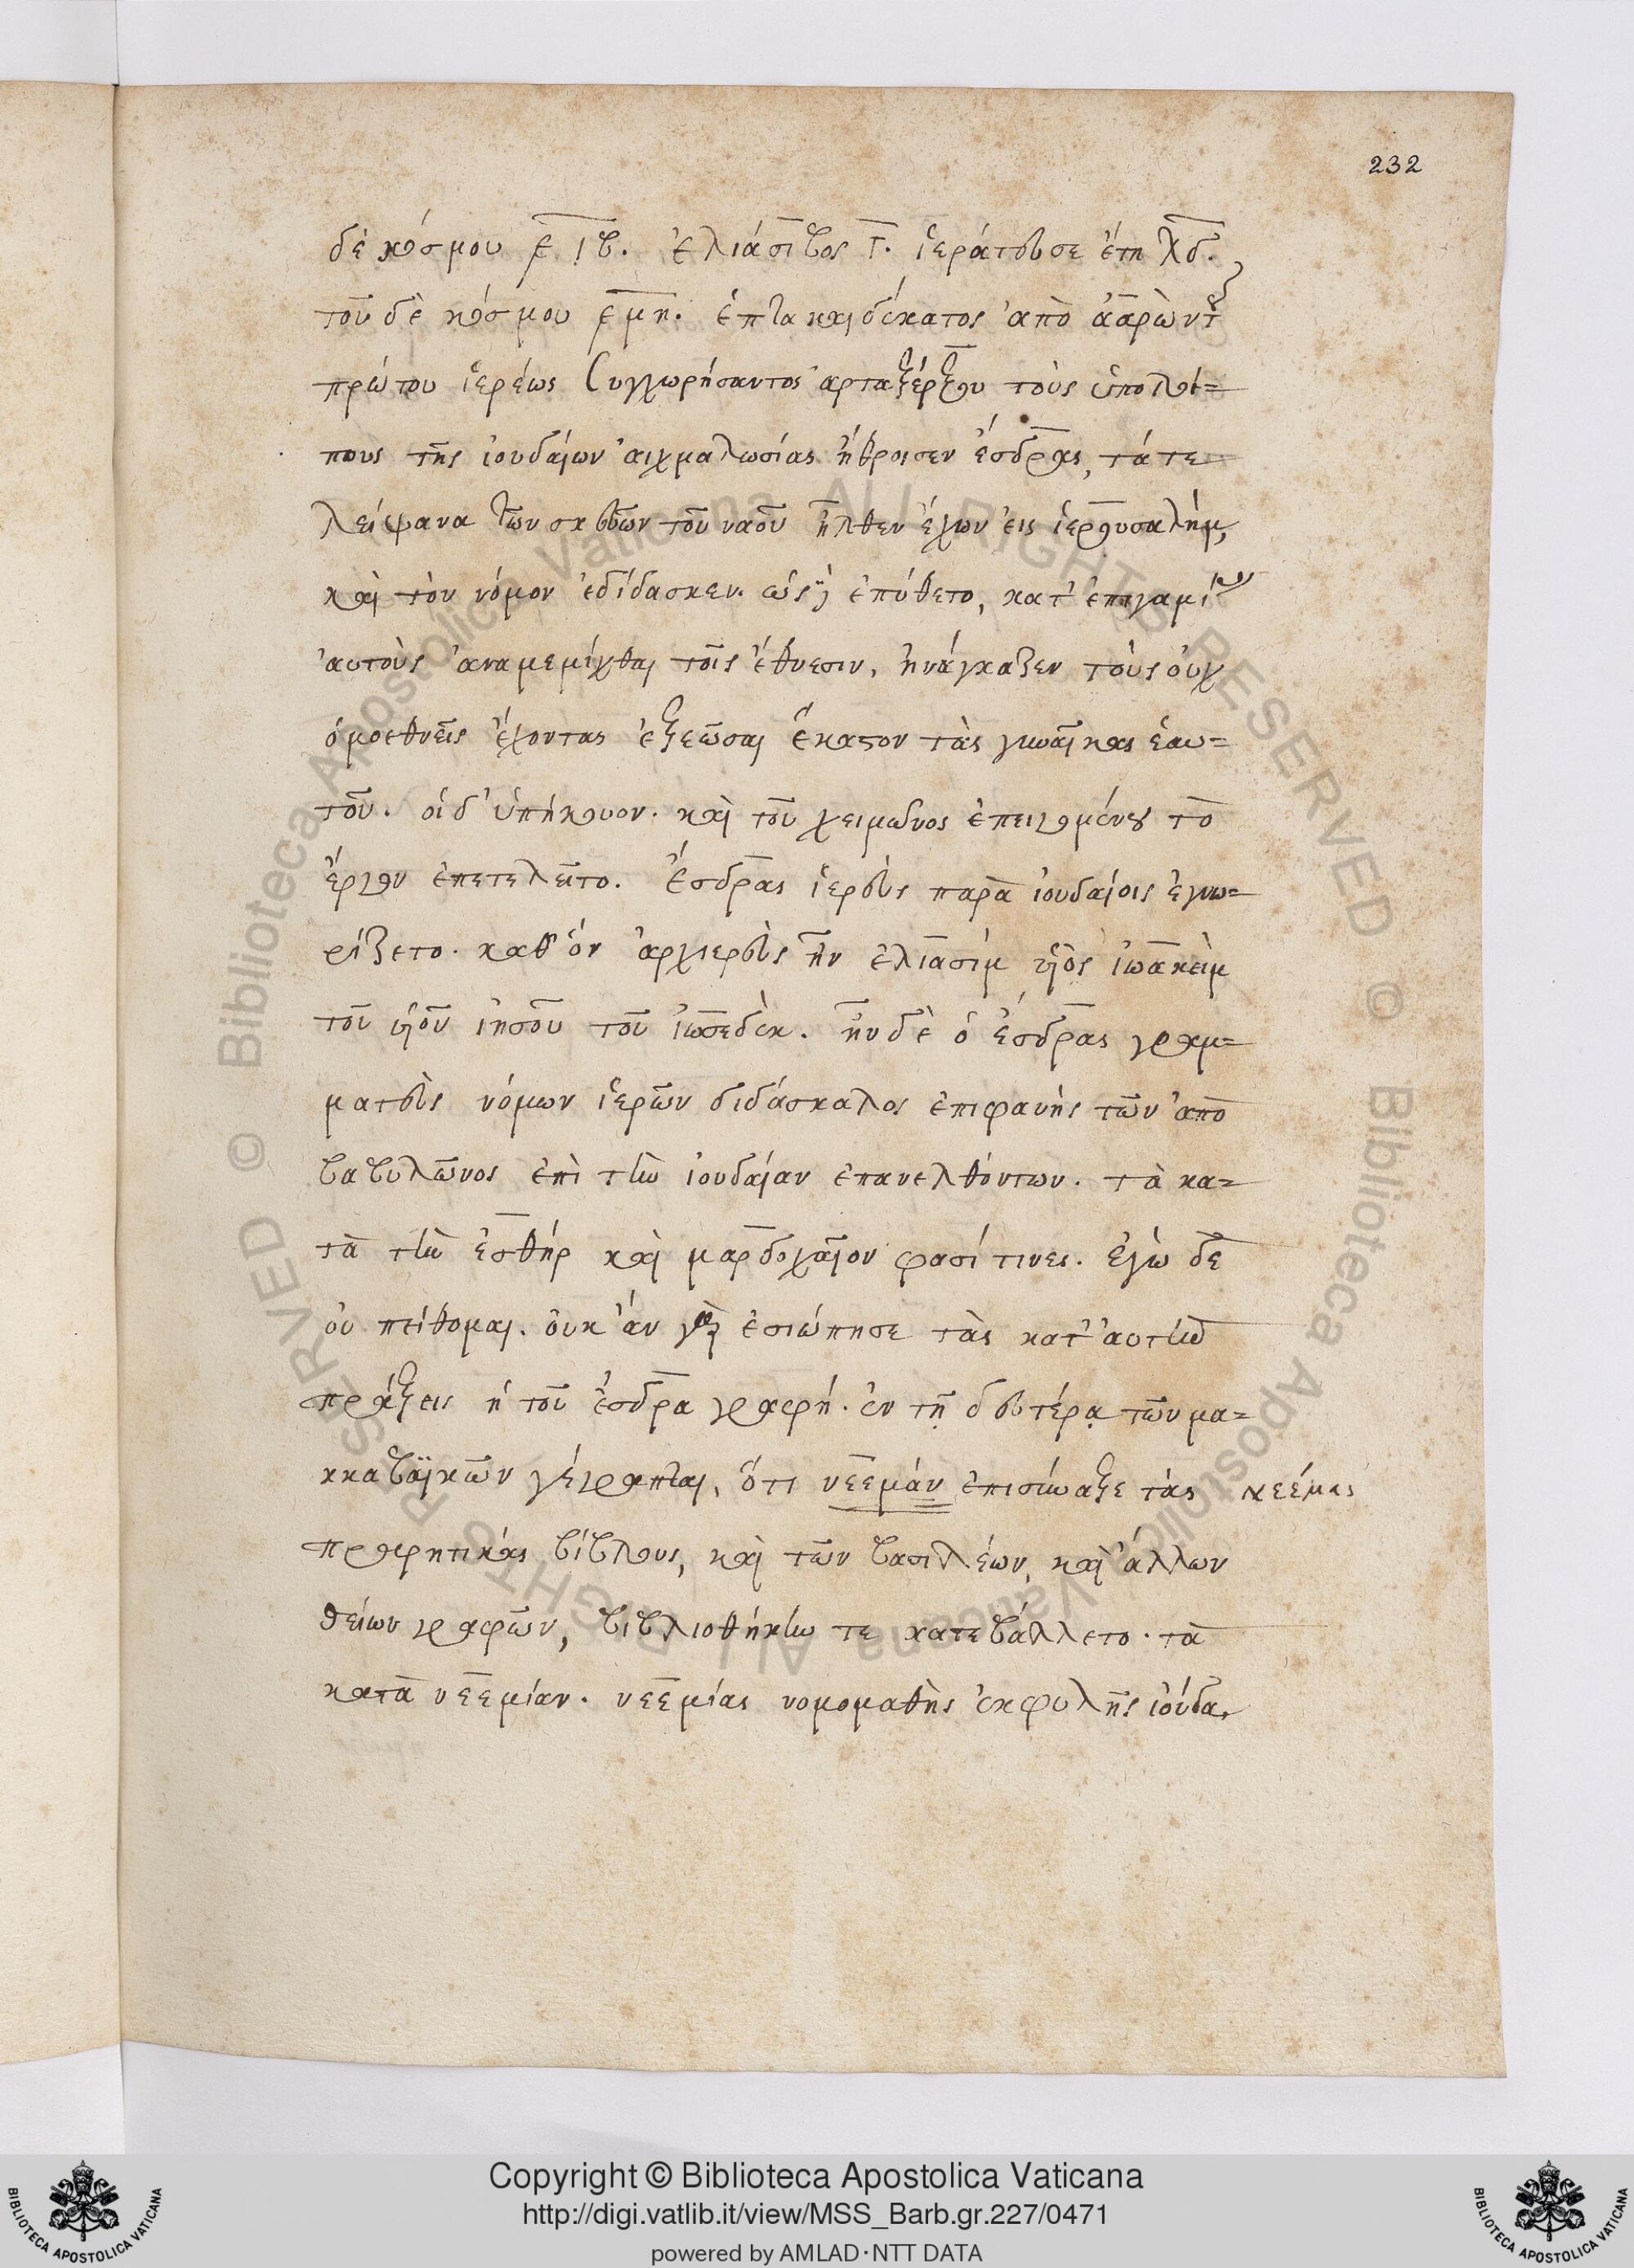 232
δὲ κόσμου ͵ε ιβ. ἐλιάσιβος γ. ἱεράτευσε ἔτη λδ.
τοῦ δὲ κόσμου ͵εμη. ἑπτακαιδέκατος ἀπὸ ἀαρὼν τοῦ
πρώτου ἱερέως συγχωρήσαντος ἀρταξέρξου τοὺς ὑπολοί=
πους τῆς ἰουδαίων αἰχμαλωσίας ἤθροισεν ἔσδρας, τά τε
λείψανα τῶν σκευῶν τοῦ ναοῦ ἦλθεν ἔχων εἰς ἱερουσαλήμ,
καὶ τὸν νόμον ἐδίδασκεν. ὡς δὲ ἐπύθετο, κατ' ἐπιγαμίαν
αὐτοὺς ἀναμεμίχθαι τοῖς ἔθνεσιν, ἠνάγκαζεν τοὺς οὐχ
ὁμοεθνεῖς ἔχοντας ἐξεῶσαι ἕκαστον τὰς γυναῖκας ἑαυ=
τοῦ. οἱ δ' ὑπήκουον. καὶ τοῦ χειμῶνος ἐπειγομένου τὸ
ἔργον ἐπετελεῖτο. Ἔσδρας ἱερεὺς παρὰ ἰουδαίοις ἐγνω=
ρίζετο. καθ' ὃν ἀρχιερεὺς ἦν ἐλιασὶμ υἱὸς ἰωακεὶμ
τοῦ υἱοῦ ἰησοῦ τοῦ ἰωσεδέκ. ἦν δὲ ὁ ἔσδρας γραμ=
ματεὺς νόμων ἱερῶν διδάσκαλος ἐπιφανὴς τῶν ἀπὸ
βαβυλῶνος ἐπὶ τὴν ἰουδαίαν ἐπανελθόντων. τὰ κα=
τὰ τὴν ἐσθὴρ καὶ μαρδοχαῖον φασί τινες. ἐγὼ δὲ
οὐ πείθομαι. οὐκ ἂν γὰρ ἐσιώπησε τὰς κατ' αὐτὴν
πράξεις ἡ τοῦ ἔσδρα γραφή. ἐν τῇ δευτέρᾳ τῶν μα=
κκαβαϊκῶν γέγραπται, ὅτι νεεμὰν ἐπισύναξε τὰς
νεέμας
προφητικὰς βίβλους, καὶ τῶν βασιλέων, καὶ ἄλλων
θείων γραφῶν, βιβλιοθήκην τε κατεβάλλετο. τὰ
κατὰ νεεμίαν. νεεμίας νομομαθὴς ἐκ φυλῆς ἰούδα,
Copyright © Biblioteca Apostolica Vaticana
http://digi.vatlib.it/view/MSS_Barb.gr.227/0471
powered by AMLAD·NTT DATA